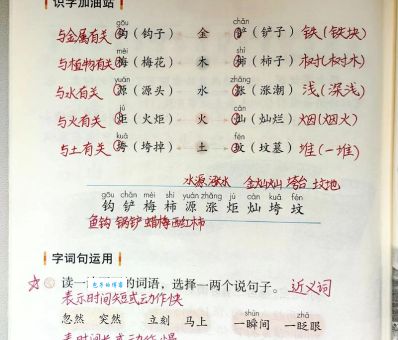 识字加油站
gōu chǎn
与金属有关 钩（钩子） 金 铲（铲子） 铁（铁块）
méi shì
与植物有关 梅（梅花） 木 柿（柿子） 树（树木）
yuán zhǎng
与水有关 源（源头） 水 涨（涨潮） 浅（深浅）
jù càn
与火有关 炬（火炬） 火 灿（灿烂） 烟（烟火）
kuǎ fén
与土有关 垮（垮掉） 土 坟（坟墓） 堆（一堆）
水源 涨水 金灿灿 垮台 坟地
gōu chǎn méi shì yuán zhǎng jù càn kuǎ fén
钩 铲 梅 柿 源 涨 炬 灿 垮 坟
鱼钩 锅铲 蜡梅 西红柿
字词句运用
读一 的词语，选择一两个说句子。 近义词
包子的博客
表示时间短或动作快
shùn zhǎ
忽然 突然 立刻 马上 一瞬间 一眨眼
表时间长或动作慢